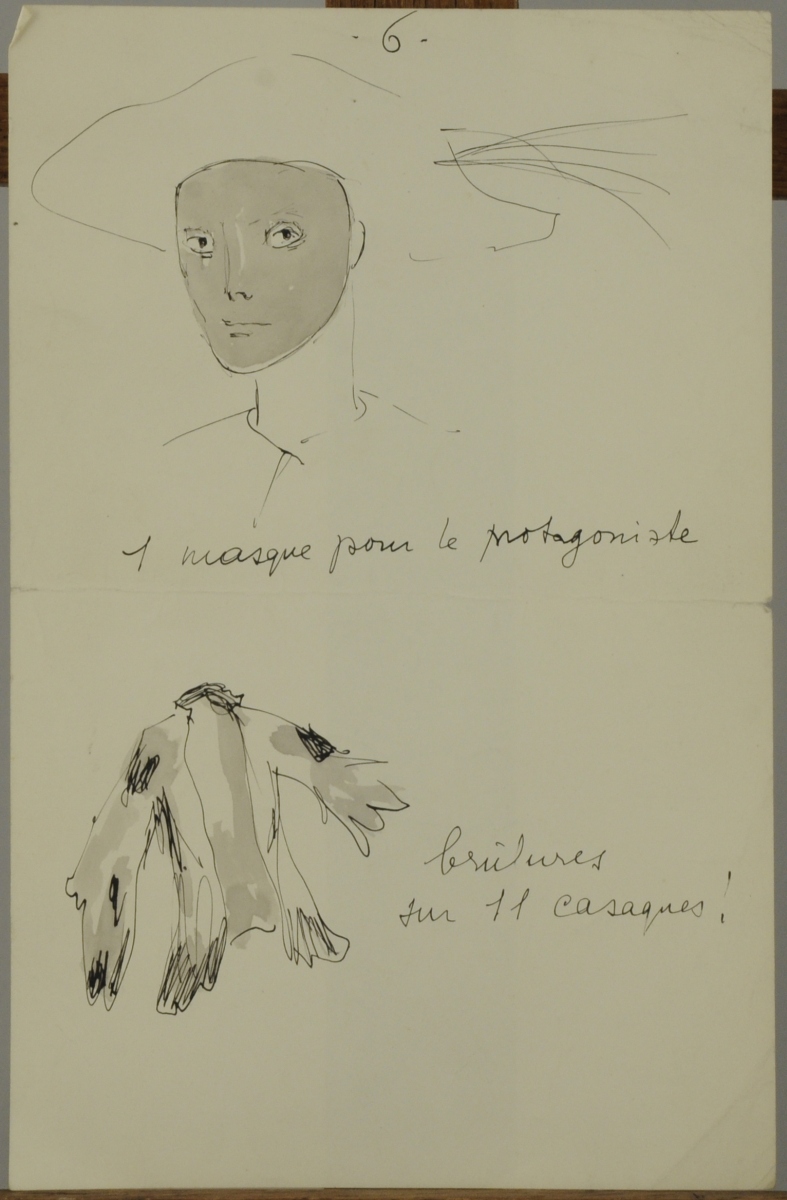 - 6 -
1 masque pour le protagoniste
brûlures
sur 11 casaques!